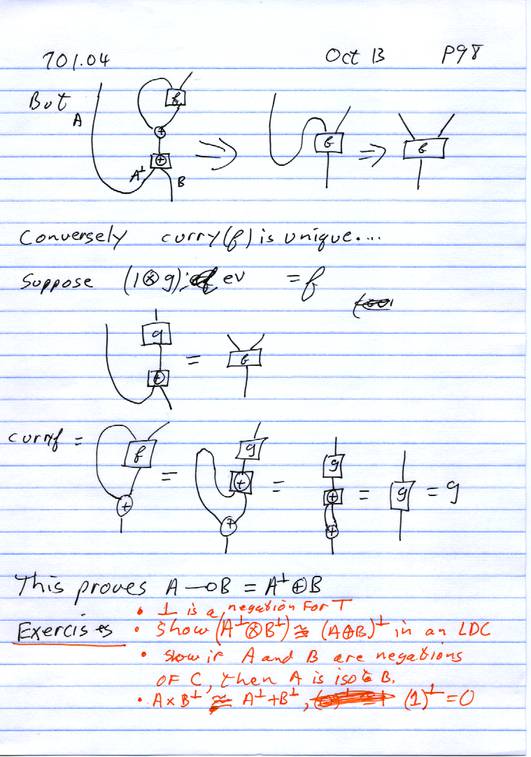 701.04 Oct 13 P98
But
A
f
⊕
⊕
A⊥ B
⇒
f
⇒
f
Conversely curry(f) is unique....
Suppose (1⊗g); ev = f
g
⊕
=
f
curryf =
f
⊕
=
g
⊕
⊕
=
g
⊕
⊕
=
g
= g
This proves A —o B = A⊥ ⊕ B
Exercises
• ⊥ is a negation for T
• Show (A⊥ ⊗ B⊥) ≅ (A⊕B)⊥ in an LDC
• Show if A and B are negations
of C, then A is iso to B.
• A × B⊥ ≅ A⊥ + B⊥, (1)⊥ = 0